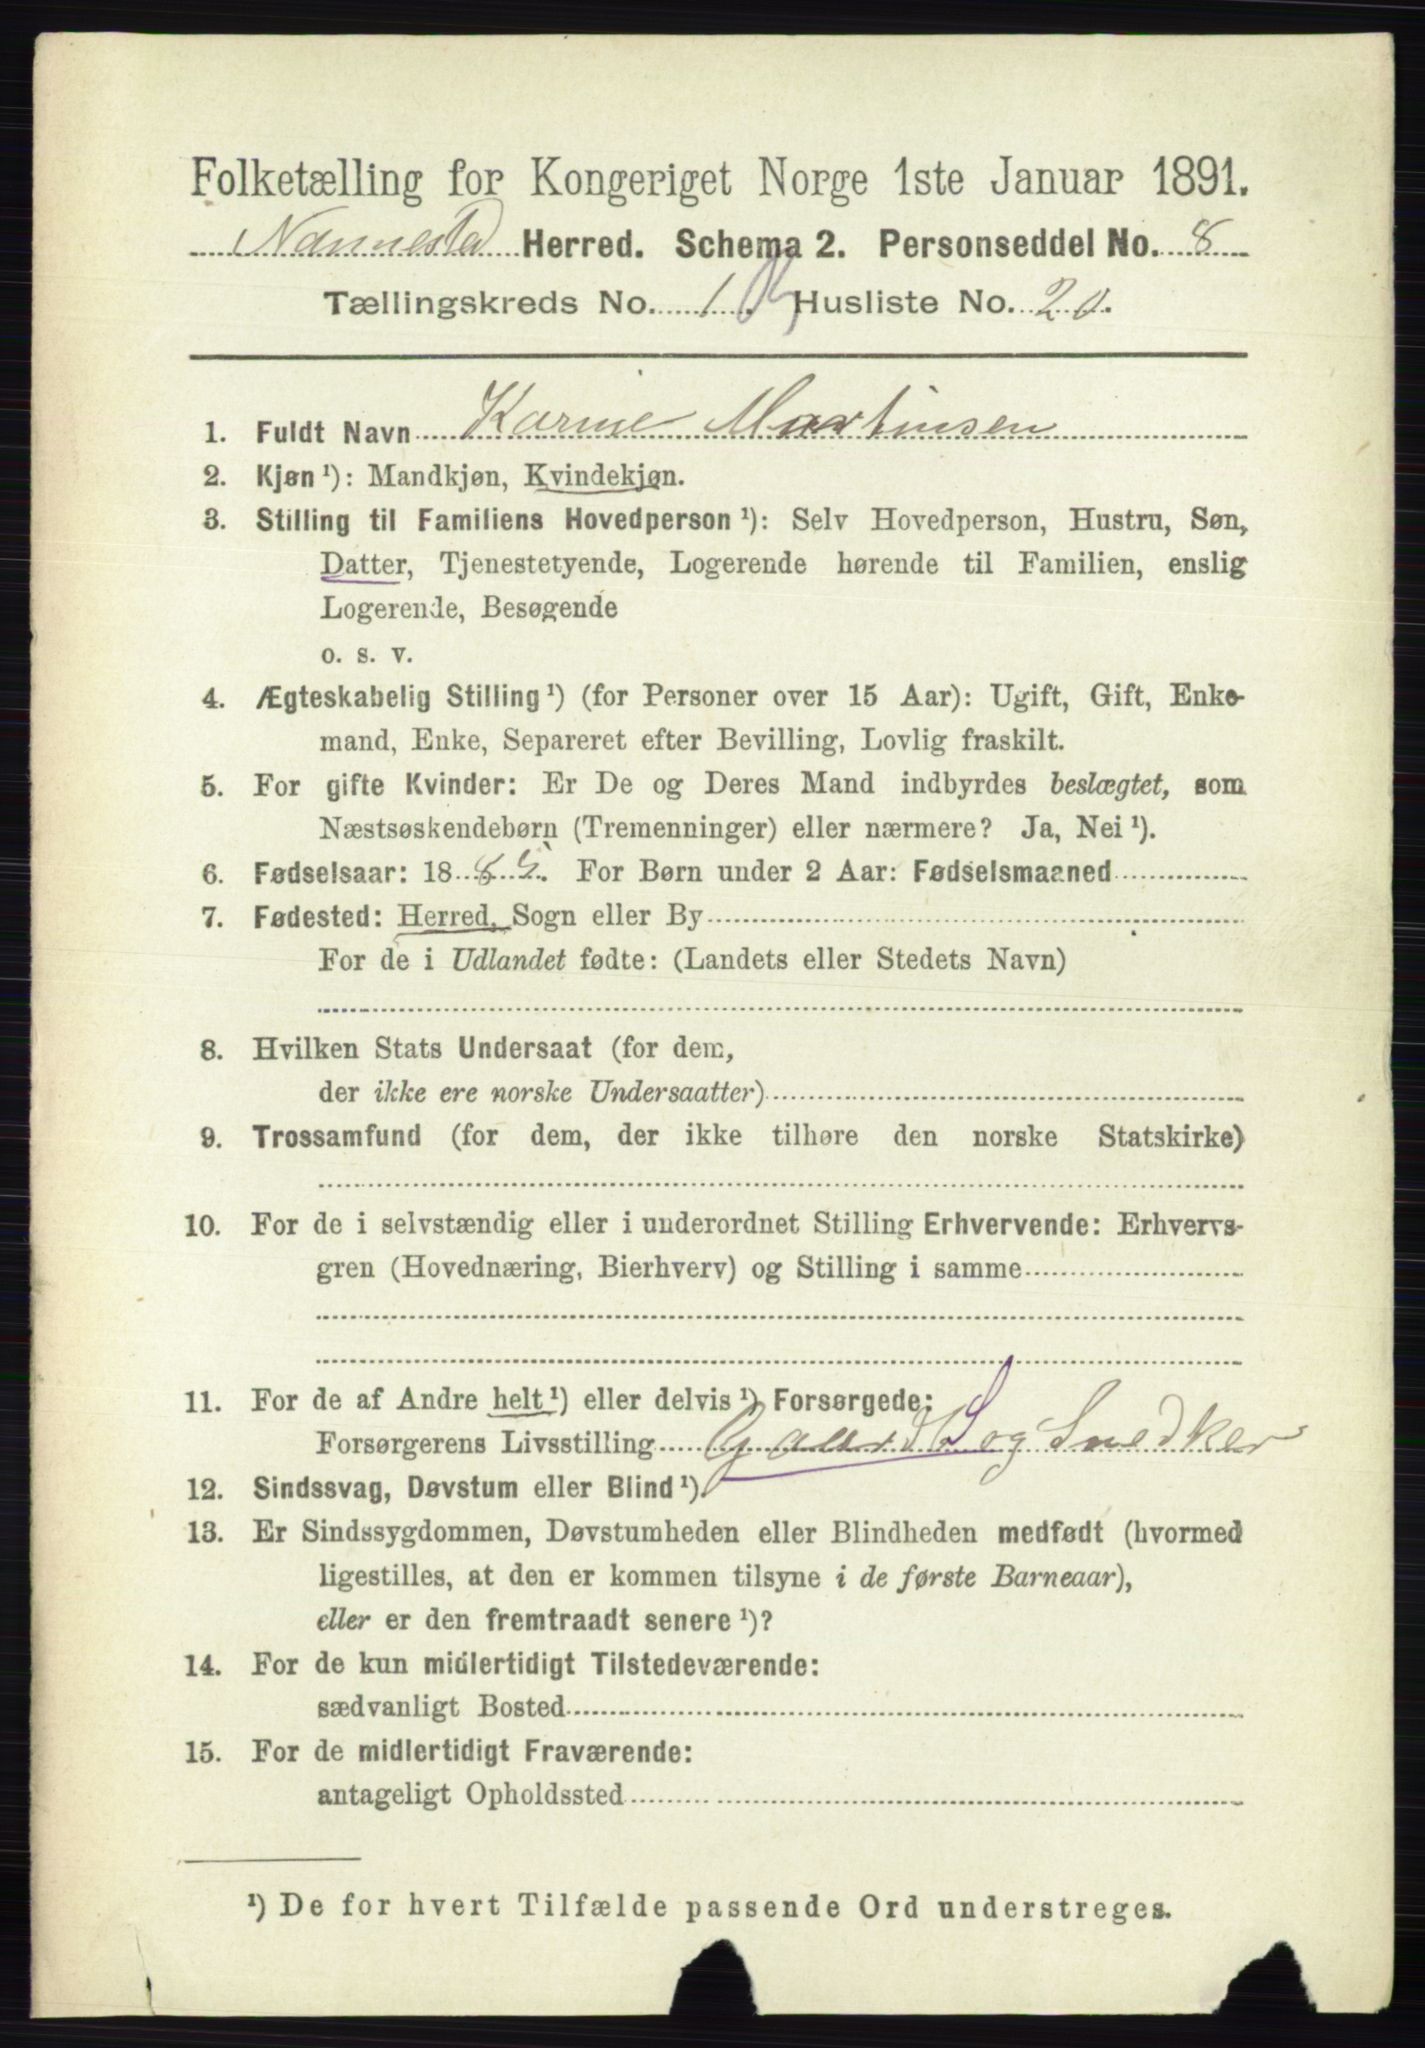 Folketælling for Kongeriget Norge 1ste Januar 1891.
Nannestad Herred. Schema 2. Personseddel No. 8
Tællingskreds No. 1 Husliste No. 20.
1. Fuldt Navn Karine Martinsen
2. Kjøn ¹): Mandkjøn, Kvindekjøn.
3. Stilling til Familiens Hovedperson ¹): Selv Hovedperson, Hustru, Søn,
Datter, Tjenestetyende, Logerende hørende til Familien, enslig
Logerende, Besøgende
o. s. v.
4. Ægteskabelig Stilling ¹) (for Personer over 15 Aar): Ugift, Gift, Enke-
mand, Enke, Separeret efter Bevilling, Lovlig fraskilt.
5. For gifte Kvinder: Er De og Deres Mand indbyrdes beslægtet, som
Næstsøskendebørn (Tremenninger) eller nærmere? Ja, Nei ¹).
6. Fødselsaar: 1885. For Børn under 2 Aar: Fødselsmaaned
7. Fødested: Herred, Sogn eller By
For de i Udlandet fødte: (Landets eller Stedets Navn)
8. Hvilken Stats Undersaat (for dem,
der ikke ere norske Undersaatter)
9. Trossamfund (for dem, der ikke tilhøre den norske Statskirke)
10. For de i selvstændig eller i underordnet Stilling Erhvervende: Erhvervs-
gren (Hovednæring, Bierhverv) og Stilling i samme
11. For de af Andre helt ¹) eller delvis ¹) Forsørgede:
Forsørgerens Livsstilling og Snedker
12. Sindssvag, Døvstum eller Blind ¹).
13. Er Sindssygdommen, Døvstumheden eller Blindheden medfødt (hvormed
ligestilles, at den er kommen tilsyne i de første Barneaar),
eller er den fremtraadt senere ¹)?
14. For de kun midlertidigt Tilstedeværende:
sædvanligt Bosted
15. For de midlertidigt Fraværende:
antageligt Opholdssted
¹) De for hvert Tilfælde passende Ord understreges.